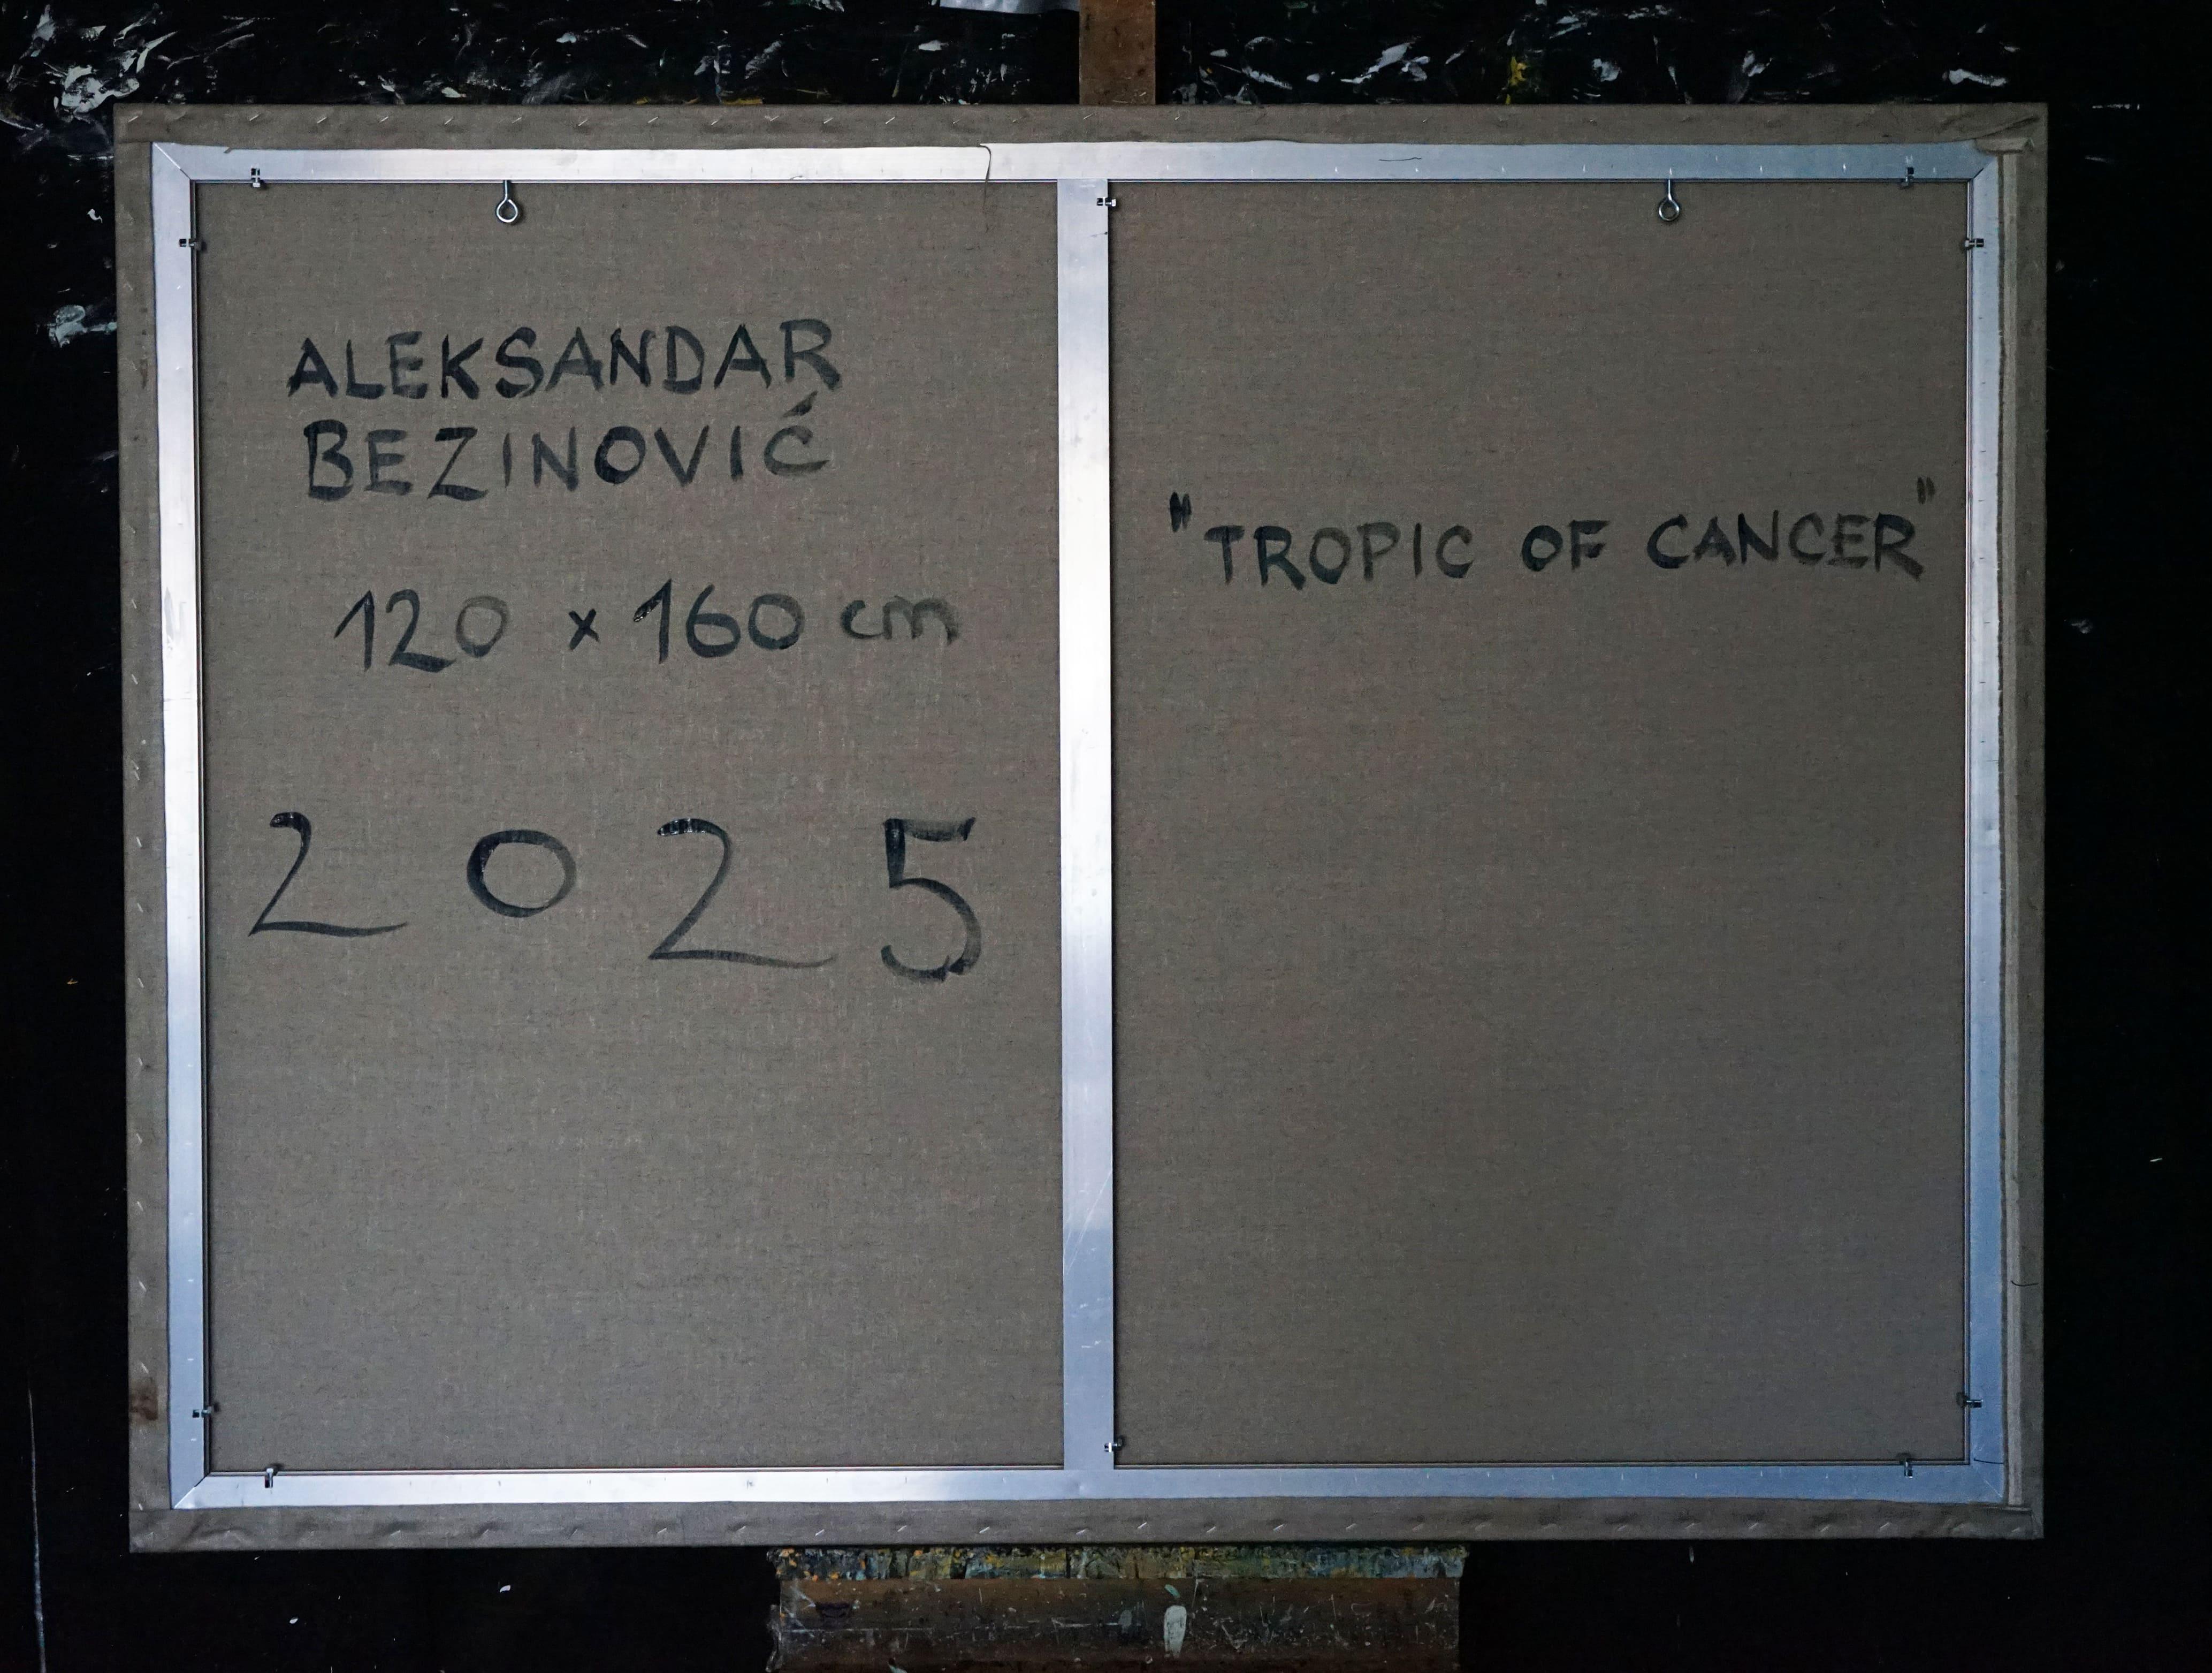 ALEKSANDAR
BEZINOVIĆ
120 x 160 cm
2025
"TROPIC OF CANCER"